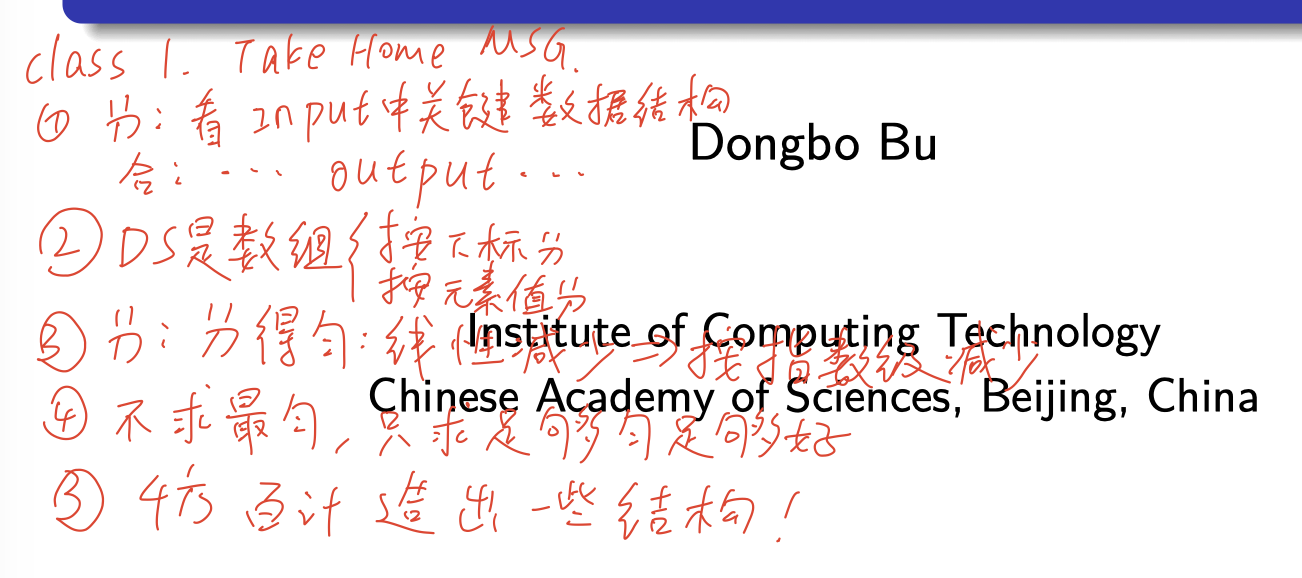 class 1. Take Home MSG.
① 分: 看 Input中关键数据结构
Dongbo Bu
合: ... output ...
② DS是数组{按下标分
按元素值分
③ 分: 分得匀: 线性减少⇒按指数级减少
Institute of Computing Technology
Chinese Academy of Sciences, Beijing, China
④ 不求最匀, 只求足够匀足够好
⑤ 千方百计造出一些结构!